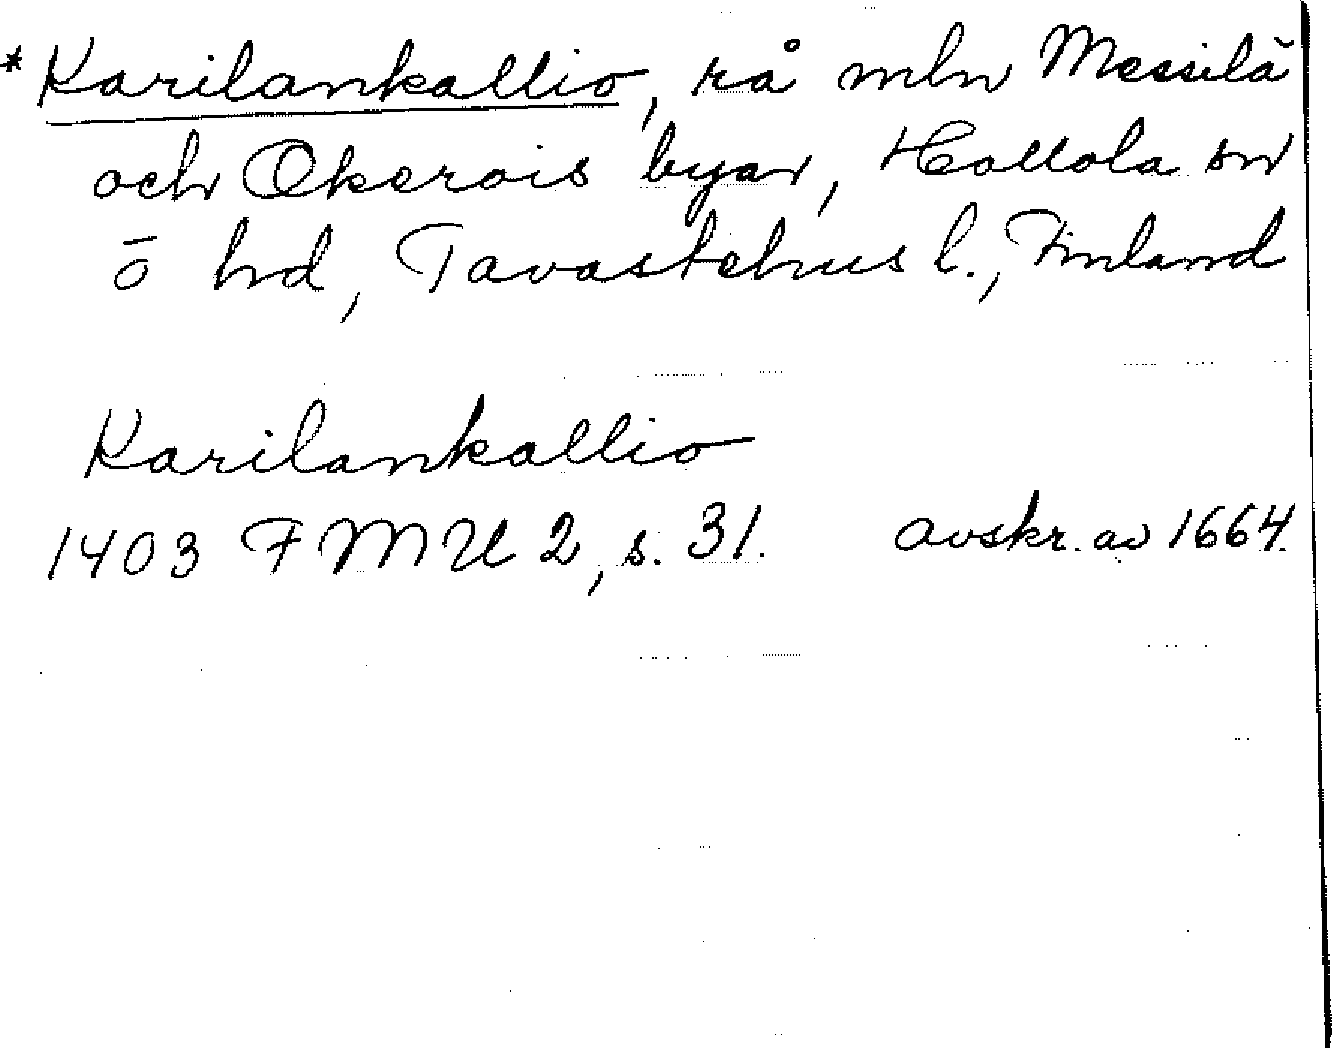 * Karilankallio, rå mln Messilä
och Okerois byar, Hollola sn
ō hd, Tavastehus l., Finland
Karilankallio
1403 FMU 2, s. 31. avskr. av 1664.